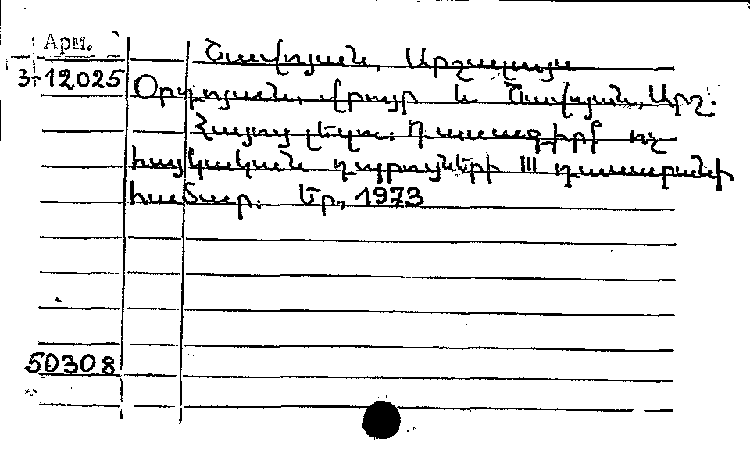 Арм.
Շավոյան, Արշալույս
3-12025
Օրդոյան, Հրայր և Շավոյան, Արշ.
Հայոց լեզու: Դասագիրք ոչ
հայկական դպրոցների III դասարանի
համար: Եր., 1973
50308